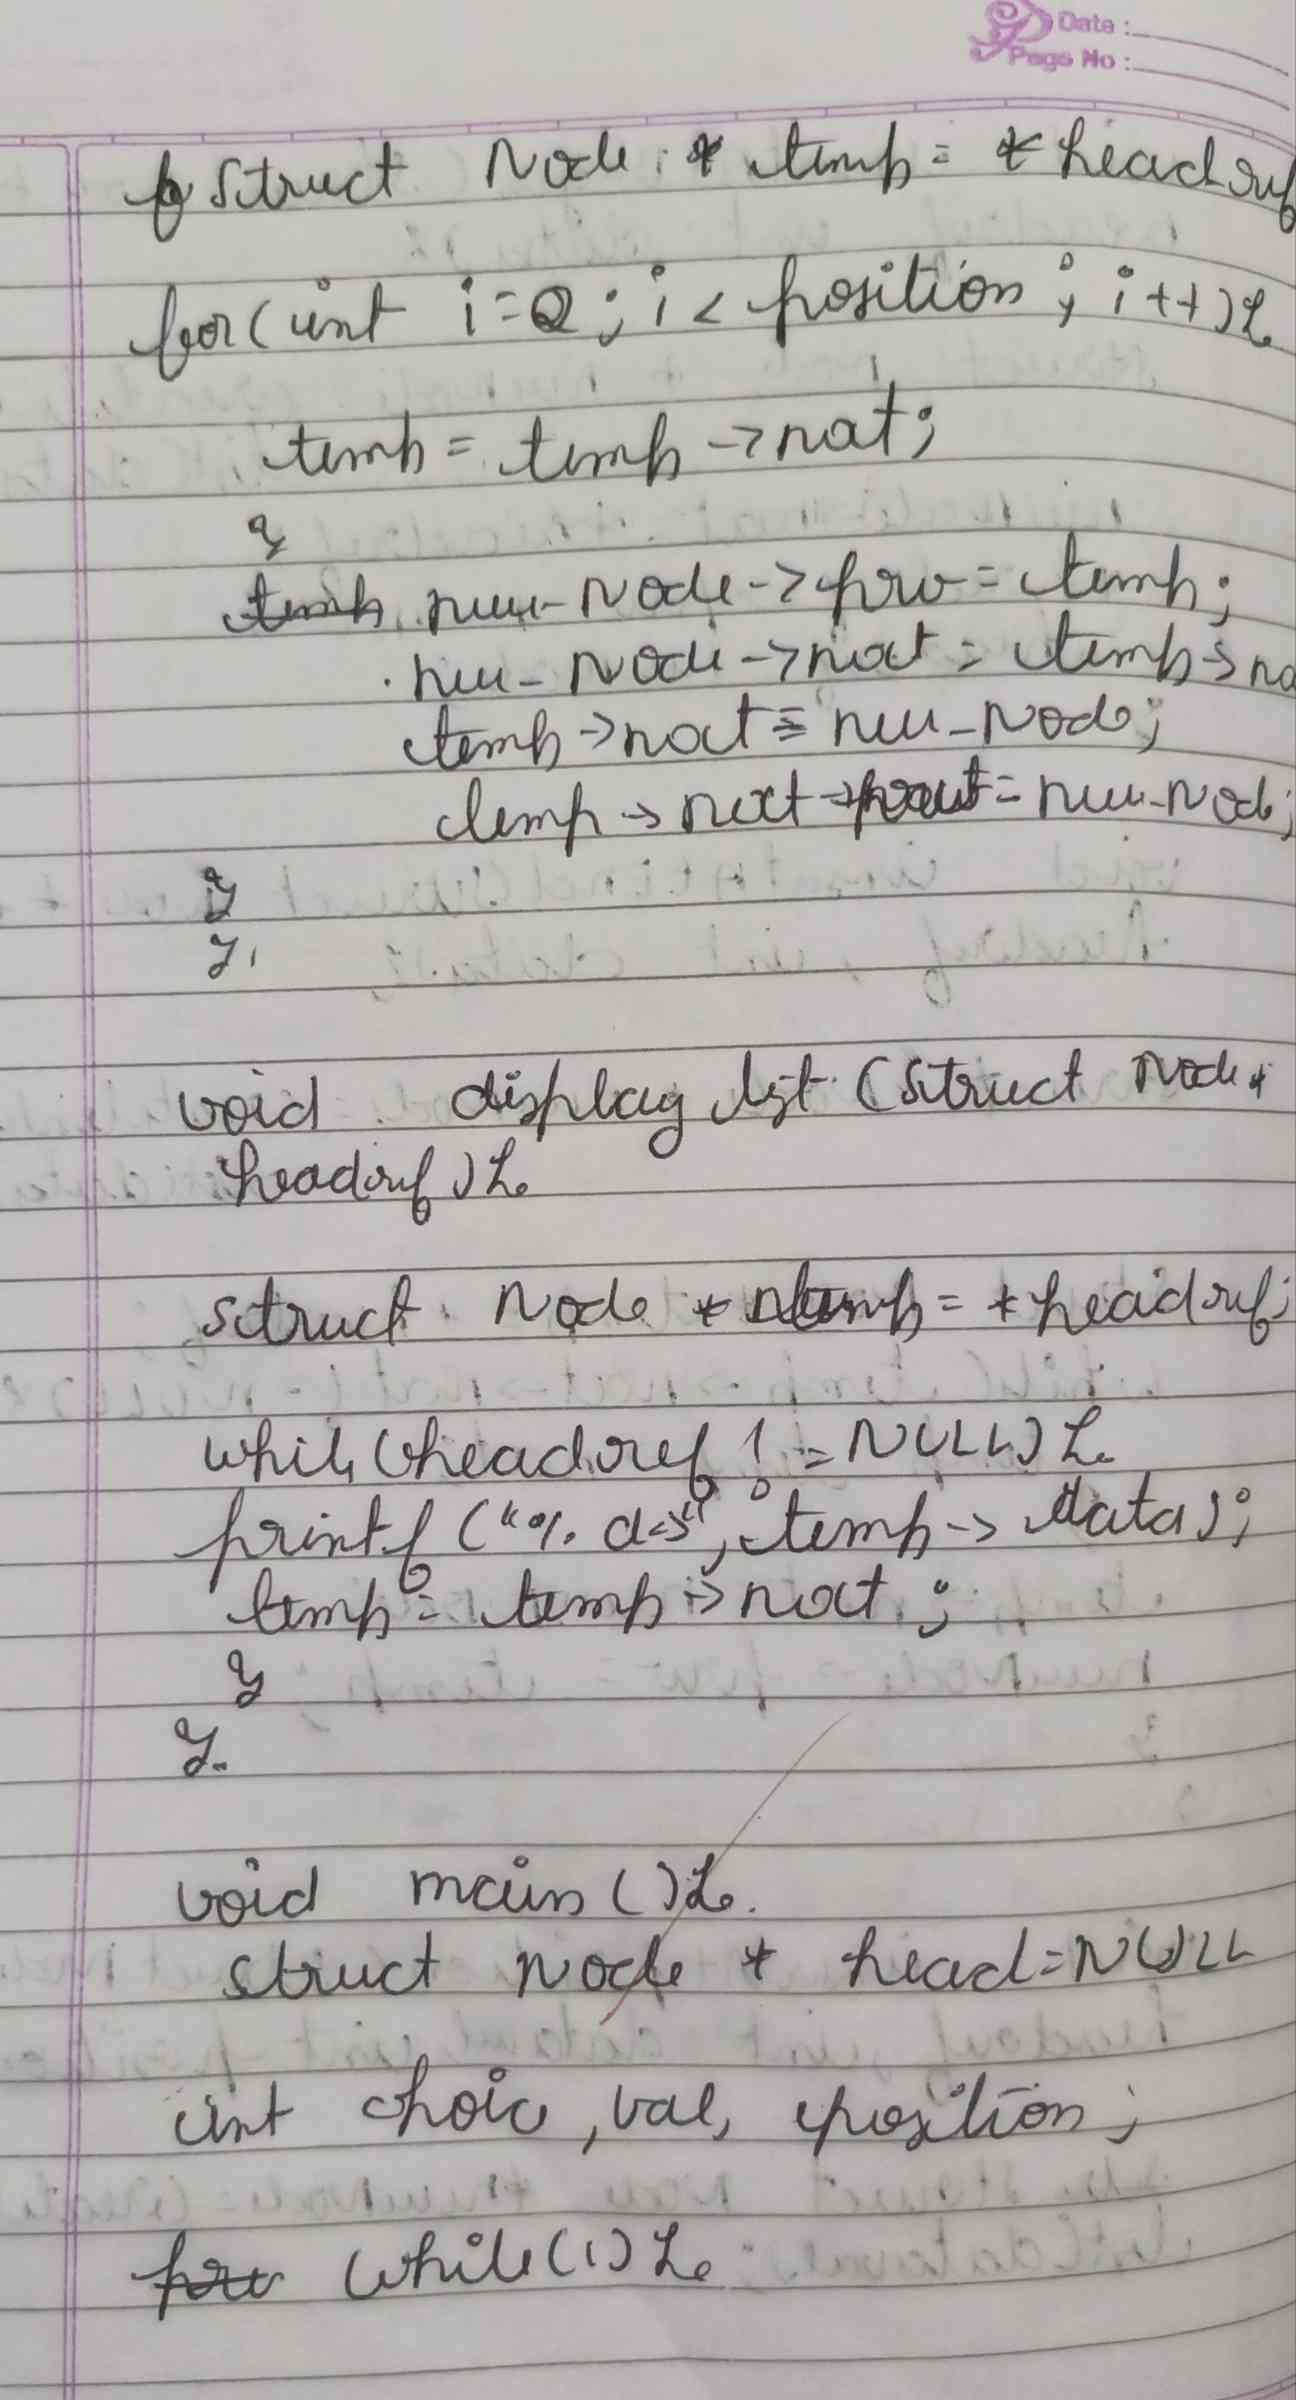 Date :
Page No :
struct Node * temp = * headref
for(int i=2; i < position ; i++){
temp = temp -> next;
}
temp new_Node -> prev = temp;
new_Node -> next = temp -> ne
temp -> next = new_Node;
temp -> next -> = new_Node;
}
}
void displaylist (struct Node *
headref){
struct Node * temp = * headref;
while(headref != NULL){
printf("%d<->", temp -> data);
temp = temp -> next ;
}
}
void main(){
struct Node * head = NULL
int choice, val, position;
for while(1){